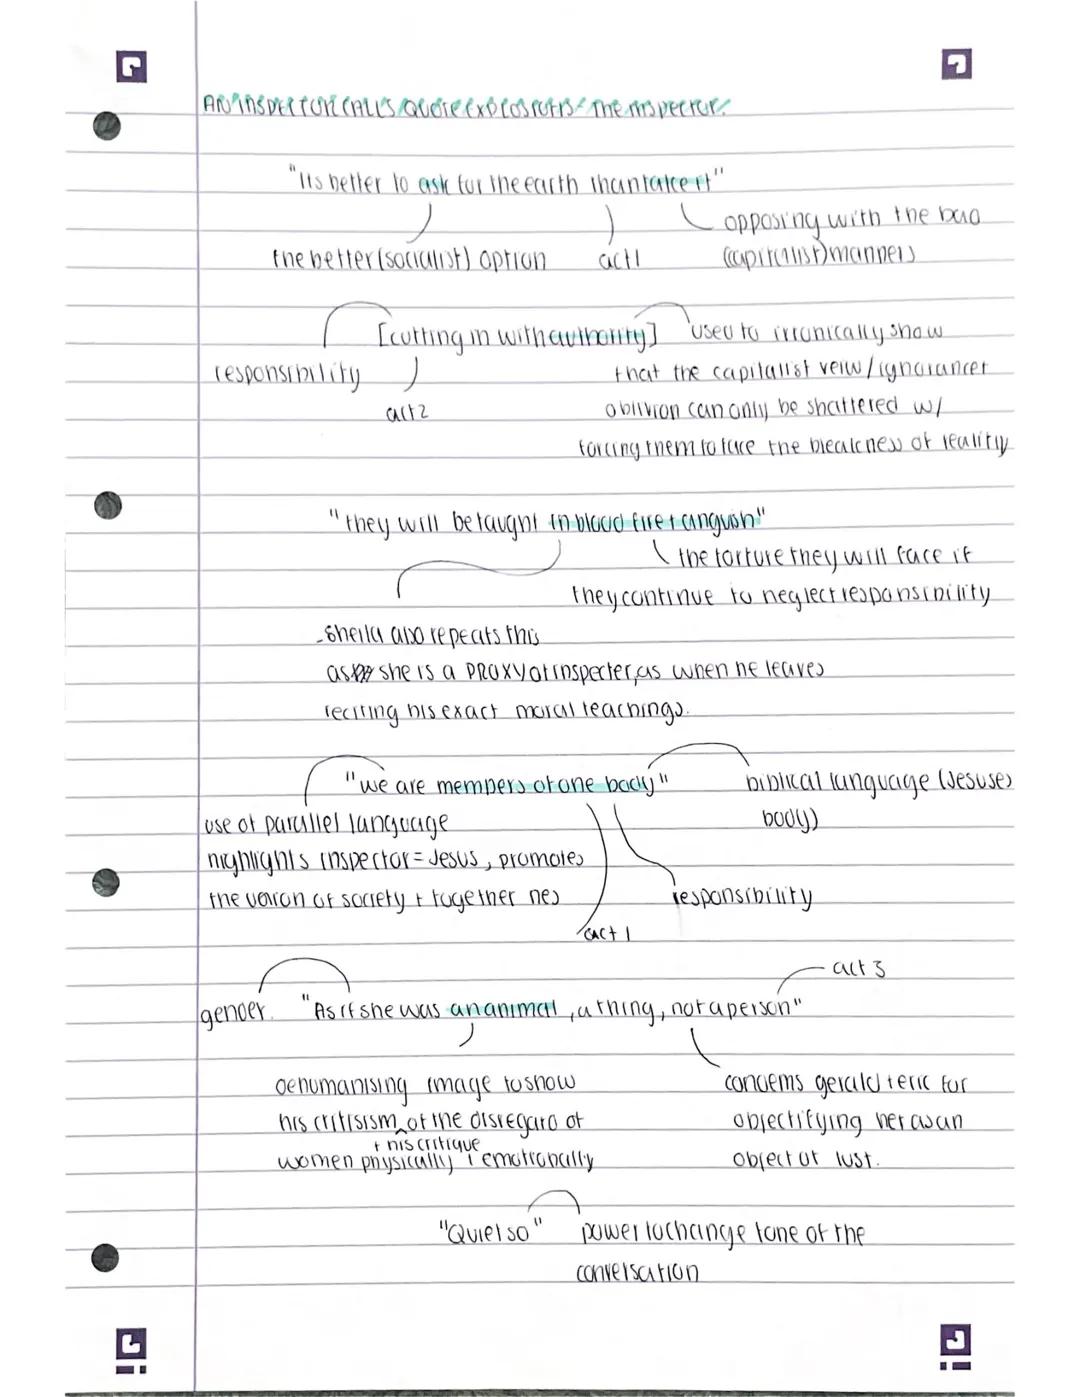 AN INSPECTOR CALLS QUOTE EXPLOSIONS: The Inspector.
"Its better to ask for the earth than take it"
opposing with the bad
the better (socialist) option act 1 (capitalist) manners
[cutting in with authority] used to ironically show
responsibility that the capitalist veiw/ignorance+
act 2 oblivion can only be shattered w/
forcing them to face the bleakness of reality
"they will be taught in blood fire + anguish"
the torture they will face if
they continue to neglect responsibility
-Sheila also repeats this
as she is a PROXY of inspecter, as when he leaves
reciting his exact moral teachings.
"we are members of one body" biblical language (Jesuses
use of parallel language body)
highlights inspector = Jesus, promotes
the of society + together nes responsibility
act 1
act 3
gender. "As if she was an animal, a thing, not a person"
dehumanising image to show concems gerald + eric for
his critisism of the disregard of objectifying her as an
+ his critique
women physically + emotionally object of lust.
"Quiet so" power to change tone of the
conversation